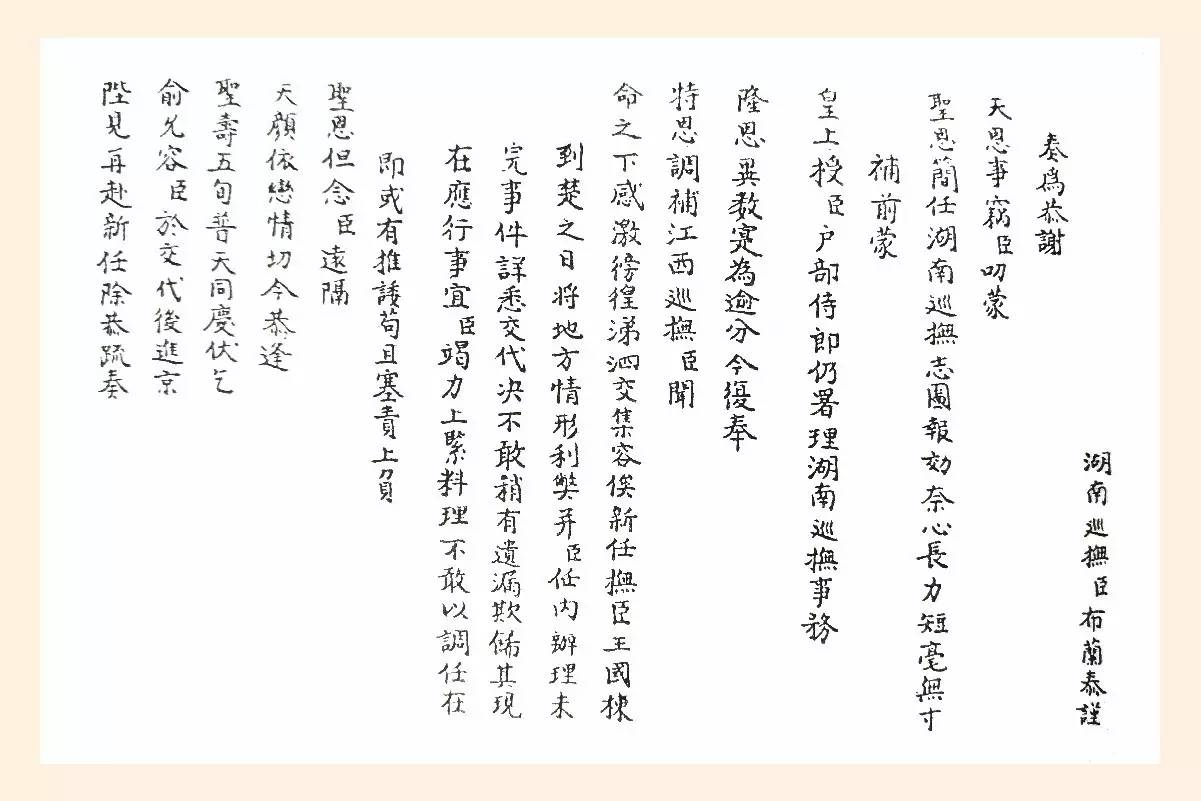 湖南巡撫臣布蘭泰謹
奏爲恭謝
天恩事竊臣叨蒙
聖恩簡任湖南巡撫志圖報効奈心長力短毫無寸
補前蒙
皇上授臣户部侍郎仍署理湖南巡撫事務
隆恩異数寔為逾分今復奉
特恩調補江西巡撫臣聞
命之下感激徬徨涕泗交集容俟新任撫臣王國棟
到楚之日将地方情形利弊并臣任内辦理未
完事件詳悉交代决不敢稍有遺漏欺餙其現
在應行事宜臣竭力上緊料理不敢以調任在
即或有推諉苟且塞責上負
聖恩但念臣遠隔
天顔依戀情切今恭逢
聖壽五旬普天同慶伏乞
俞允容臣於交代後進京
陛見再赴新任除恭疏奏